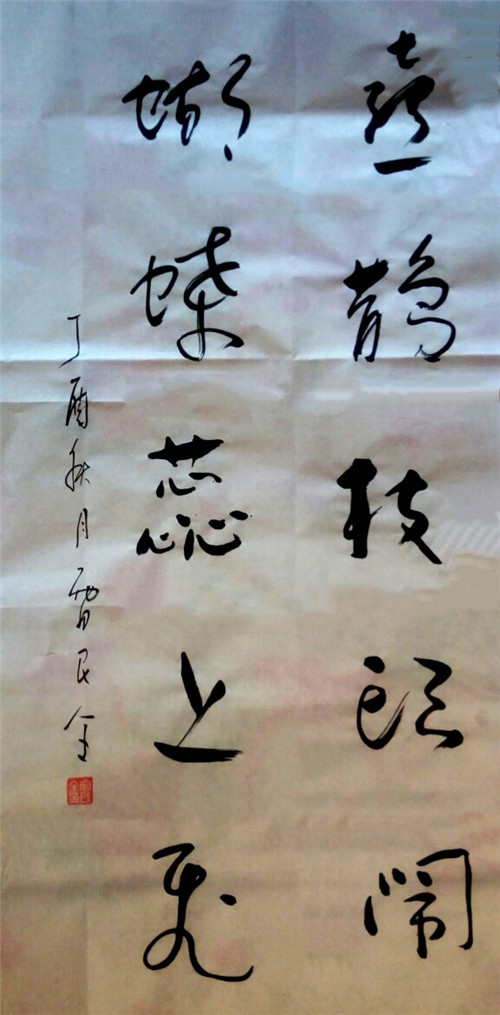 喜鹊枝头闹
蝴蝶蕊上飞
丁酉秋月雷民全